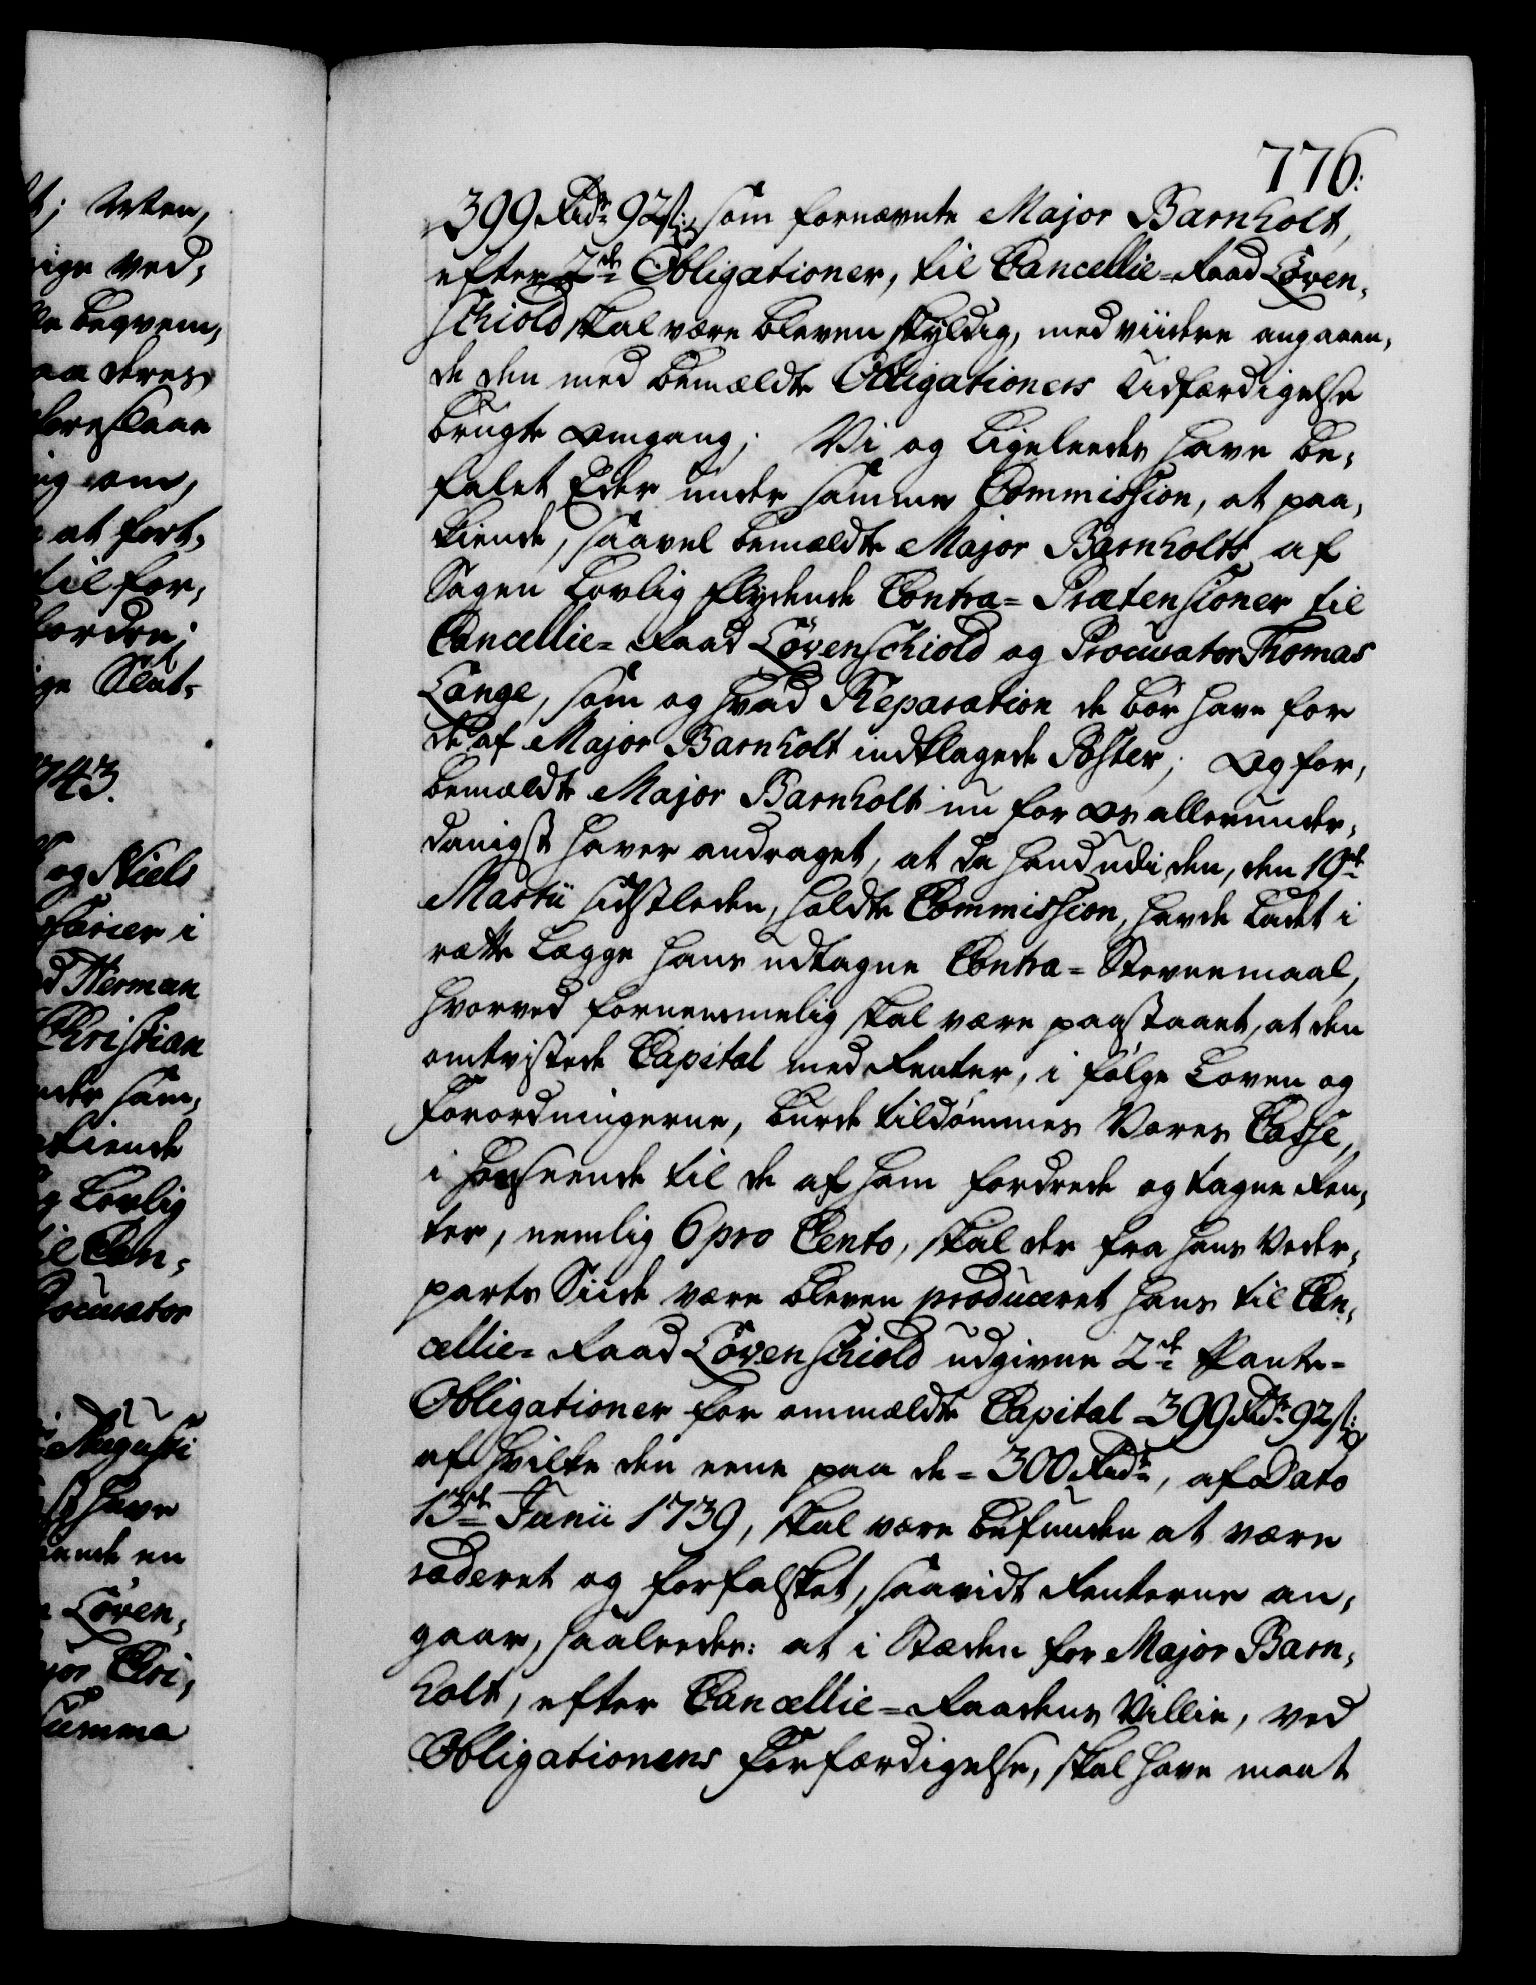 t; Uten,
ige ved-
le beqvem,
aa deres
ig om,
at fort-
til for-
fordre;
ge Slut-
1743.
og Niels
farier i
d Herman
Christian
nder sam-
kiende
g Lovlig
il Can-
Procurator
Augusti
st have
ende en
Löven-
jor Chri-
Summa
776.
399 Rdr 92 s: som fornævnte Major Barnholt,
efter 2de Obligationer, til Cancellie-Raad Löven-
schiold skal være bleven skyldig, med viidere angaaen-
de den med bemældte Obligationers Udfærdigelse
brugte Omgang; Vi og ligeleedes have be-
falet Eder under samme Commission, at paa-
kiende, saavel bemældte Major Barnholts af
Sagen lovlig flydende Contra-Prætensioner til
Cancellie-Raad Lövenschiold og Procurator Thomas
Lange, som og hvad Reparation de bör have for
de af Major Barnholt indklagede Poster; Og for-
bemældte Major Barnholt nu for Os allerunder-
danigst haver andraget, at da hand udi den, den 19de
Martii sidstleden, holdte Commission, havde ladet i
rætte lægge hans udtagne Contra-Stevnemaal,
hvorved fornemmelig skal være paastaaet, at den
omtvistede Capital med Renter, i fölge Loven og
Forordningerne, burde tildömmes Vores Casse,
i Henseende til de af ham fordrede og tagne Ren-
ter, nemlig 6 pro Cento, skal der fra hans Veder-
parts Siide være bleven produceret hans til Can-
cellie-Raad Lövenschiold udgivne 2de Pante-
Obligationer for ommældte Capital 399 Rdr 92 s:
af hvilke den eene paa de 300 Rdr, af Dato
13de Junii 1739, skal være befunden at være
raderet og forfalsket, saavidt Renterne an-
gaar, saaleedes: at i Stæden for Major Barn-
holt, efter Cancellie-Raadens Villie, ved
Obligationens Forfærdigelse, skal have maat